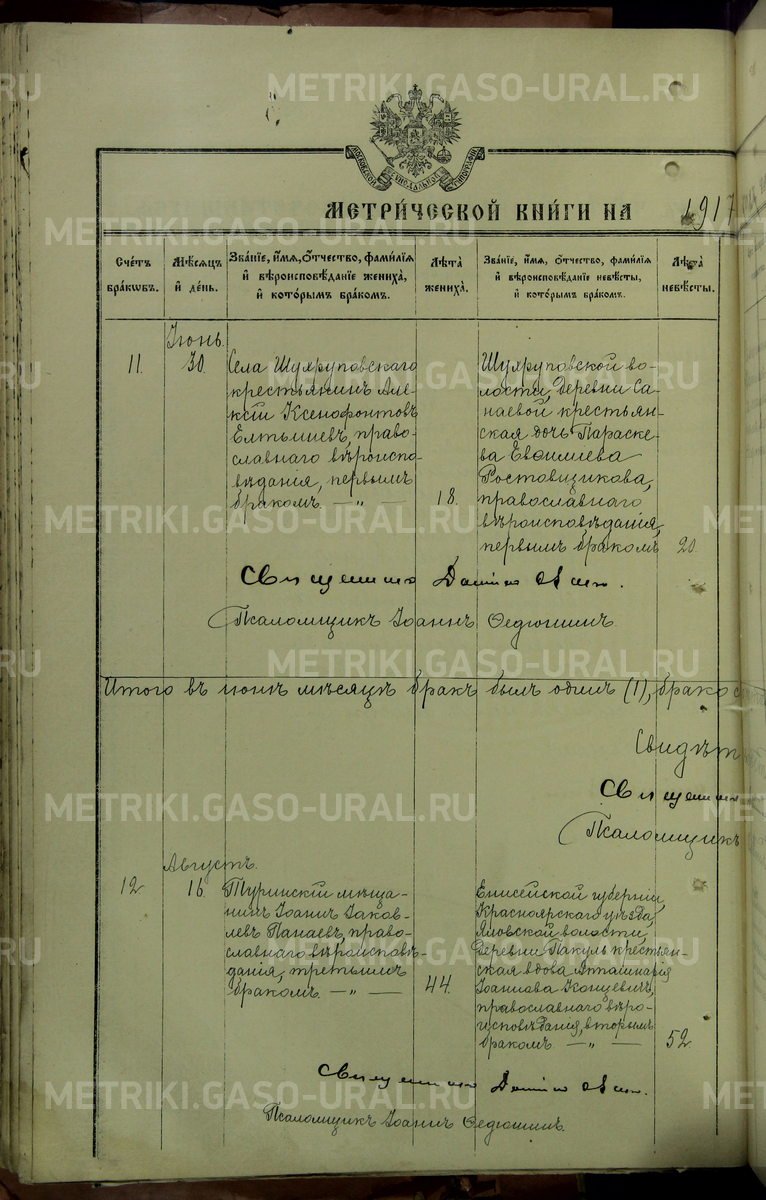 МОСКОВСКОЙ СИНОДАЛЬНОЙ ТИПОГРАФІИ
МЕТРИ́ЧЕСКОЙ КНИ́ГИ НА 1917
Сче́тъ бра́кѡвъ.
Мѣ́сяцъ и҆ де́нь.
Зва́нїе, и҆́мѧ, ѻ҆́тчество, фами́лїѧ и҆ вѣроисповѣ́данїе жениха̀, и҆ кото́рымъ бра́комъ.
Лѣ́та жениха̀.
Зва́нїе, и҆́мѧ, ѻ҆́тчество, фами́лїѧ и҆ вѣроисповѣ́данїе невѣ́сты, и҆ кото́рымъ бра́комъ.
Лѣ́та невѣ́сты.
Іюнь.
11.
30.
Села Шухруповскаго
крестьянинъ Але-
ксій Ксенофонтовъ
Елтышевъ, право-
славнаго вѣроиспо-
вѣданія, первымъ
бракомъ. — „ —
18.
Шухруповской во-
лости, деревни Са-
наевой крестьян-
ская дочь Параске-
ва Евѳимиева
Ростовщикова,
православнаго
вѣроисповѣданія,
первымъ бракомъ
20.
Священникъ
Псаломщикъ Іоаннъ Ѳедюшинъ.
Итого въ іюнѣ мѣсяцѣ бракъ былъ одинъ (1), брако
Свидѣт
Священник
Псаломщикъ
Августъ.
12
16.
Туринскій мѣща-
нинъ Іоаннъ Іаков-
левъ Панаевъ, право-
славнаго вѣроисповѣ-
данія, третьимъ
бракомъ. — „ —
44.
Енисейской губерніи,
Красноярскаго уѣзда,
волости
деревни Пакуль крестьян-
ская вдова Апполинарія
Іоаннова Концевичъ,
православнаго вѣро-
исповѣданія, вторымъ
бракомъ. — „ —
52.
Священникъ
Псаломщикъ Іоаннъ Ѳедюшинъ.
METRIKI.GASO-URAL.RU